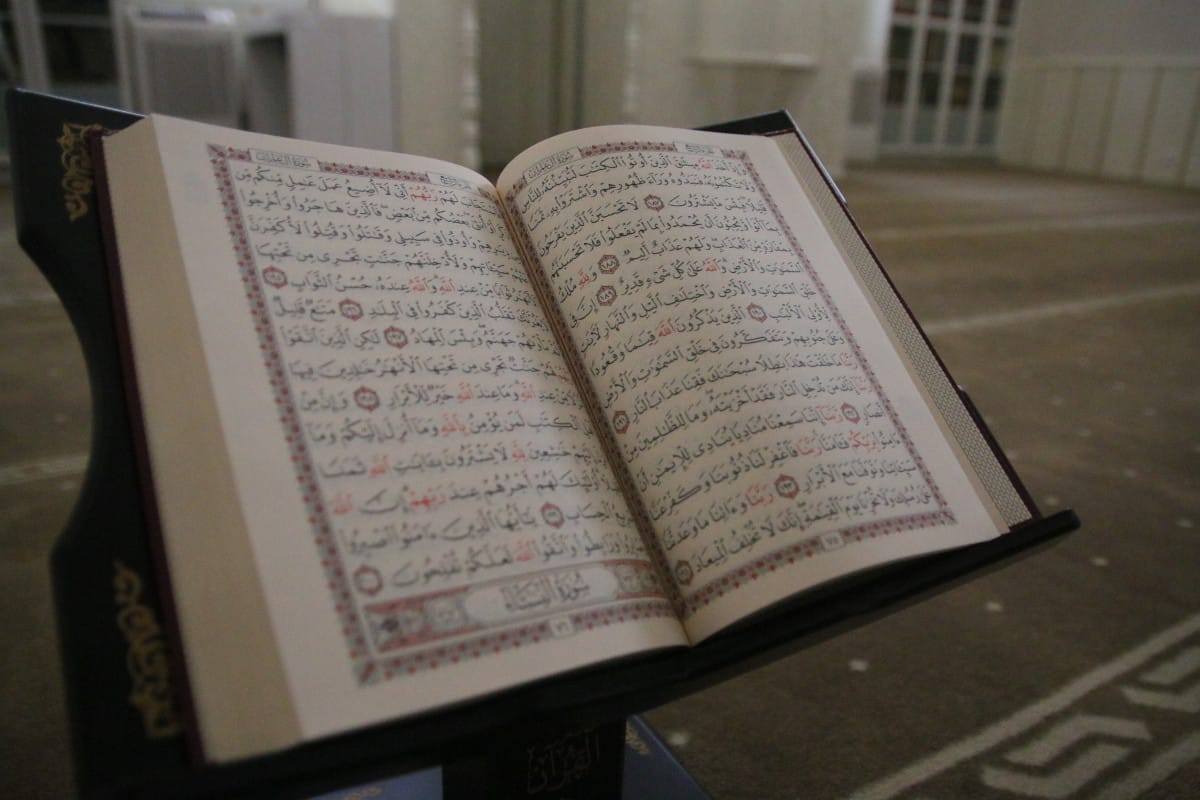 سُورَةُ آلِ عِمْرَانَ
وَإِذْ أَخَذَ ٱللَّهُ مِيثَٰقَ ٱلَّذِينَ أُوتُوا۟ ٱلْكِتَٰبَ لَتُبَيِّنُنَّهُۥ لِلنَّاسِ
وَلَا تَكْتُمُونَهُۥ فَنَبَذُوهُ وَرَآءَ ظُهُورِهِمْ وَٱشْتَرَوْا۟ بِهِۦ ثَمَنًا
قَلِيلًا فَبِئْسَ مَا يَشْتَرُونَ ١٨٧ لَا تَحْسَبَنَّ ٱلَّذِينَ يَفْرَحُونَ
بِمَآ أَتَوا۟ وَّيُحِبُّونَ أَن يُحْمَدُوا۟ بِمَا لَمْ يَفْعَلُوا۟ فَلَا تَحْسَبَنَّهُم
بِمَفَازَةٍ مِّنَ ٱلْعَذَابِ وَلَهُمْ عَذَابٌ أَلِيمٌ ١٨٨ وَلِلَّهِ مُلْكُ
ٱلسَّمَٰوَٰتِ وَٱلْأَرْضِ وَٱللَّهُ عَلَىٰ كُلِّ شَىْءٍ قَدِيرٌ ١٨٩ إِنَّ فِى
خَلْقِ ٱلسَّمَٰوَٰتِ وَٱلْأَرْضِ وَٱخْتِلَٰفِ ٱلَّيْلِ وَٱلنَّهَارِ لَءَايَٰتٍ
لِّأُو۟لِى ٱلْأَلْبَٰبِ ١٩٠ ٱلَّذِينَ يَذْكُرُونَ ٱللَّهَ قِيَٰمًا وَقُعُودًا
وَعَلَىٰ جُنُوبِهِمْ وَيَتَفَكَّرُونَ فِى خَلْقِ ٱلسَّمَٰوَٰتِ وَٱلْأَرْضِ
رَبَّنَا مَا خَلَقْتَ هَٰذَا بَٰطِلًا سُبْحَٰنَكَ فَقِنَا عَذَابَ ٱلنَّارِ ١٩١
رَبَّنَآ إِنَّكَ مَن تُدْخِلِ ٱلنَّارَ فَقَدْ أَخْزَيْتَهُۥ وَمَا لِلظَّٰلِمِينَ مِنْ
أَنصَارٍ ١٩٢ رَّبَّنَآ إِنَّنَا سَمِعْنَا مُنَادِيًا يُنَادِى لِلْإِيمَٰنِ أَنْ
ءَامِنُوا۟ بِرَبِّكُمْ فَـَٔامَنَّا رَبَّنَا فَٱغْفِرْ لَنَا ذُنُوبَنَا وَكَفِّرْ عَنَّا
سَيِّـَٔاتِنَا وَتَوَفَّنَا مَعَ ٱلْأَبْرَارِ ١٩٣ رَبَّنَا وَءَاتِنَا مَا وَعَدتَّنَا
عَلَىٰ رُسُلِكَ وَلَا تُخْزِنَا يَوْمَ ٱلْقِيَٰمَةِ إِنَّكَ لَا تُخْلِفُ ٱلْمِيعَادَ ١٩٤
٧٥
سُورَةُ آلِ عِمْرَانَ
لَهُمْ رَبُّهُمْ أَنِّى لَآ أُضِيعُ عَمَلَ عَٰمِلٍ مِّنكُم مِّن
بَعْضُكُم مِّنۢ بَعْضٍ فَٱلَّذِينَ هَاجَرُوا۟ وَأُخْرِجُوا۟
وَأُوذُوا۟ فِى سَبِيلِى وَقَٰتَلُوا۟ وَقُتِلُوا۟ لَأُكَفِّرَنَّ
سَيِّـَٔاتِهِمْ وَلَأُدْخِلَنَّهُمْ جَنَّٰتٍ تَجْرِى مِن تَحْتِهَا
ثَوَابًا مِّنْ عِندِ ٱللَّهِ وَٱللَّهُ عِندَهُۥ حُسْنُ ٱلثَّوَابِ ١٩٥
تَقَلُّبُ ٱلَّذِينَ كَفَرُوا۟ فِى ٱلْبِلَٰدِ ١٩٦ مَتَٰعٌ قَلِيلٌ
جَهَنَّمُ وَبِئْسَ ٱلْمِهَادُ ١٩٧ لَٰكِنِ ٱلَّذِينَ ٱتَّقَوْا۟
جَنَّٰتٌ تَجْرِى مِن تَحْتِهَا ٱلْأَنْهَٰرُ خَٰلِدِينَ فِيهَا
مِّنْ عِندِ ٱللَّهِ وَمَا عِندَ ٱللَّهِ خَيْرٌ لِّلْأَبْرَارِ ١٩٨ وَإِنَّ مِنْ
ٱلْكِتَٰبِ لَمَن يُؤْمِنُ بِٱللَّهِ وَمَآ أُنزِلَ إِلَيْكُمْ وَمَآ
خَٰشِعِينَ لِلَّهِ لَا يَشْتَرُونَ بِـَٔايَٰتِ ٱللَّهِ ثَمَنًا
أُو۟لَٰٓئِكَ لَهُمْ أَجْرُهُمْ عِندَ رَبِّهِمْ إِنَّ ٱللَّهَ
ٱلْحِسَابِ ١٩٩ يَٰٓأَيُّهَا ٱلَّذِينَ ءَامَنُوا۟ ٱصْبِرُوا۟
وَرَابِطُوا۟ وَٱتَّقُوا۟ ٱللَّهَ لَعَلَّكُمْ تُفْلِحُونَ ٢٠٠
سُورَةُ النِّسَاءِ
٧٦
القرآن